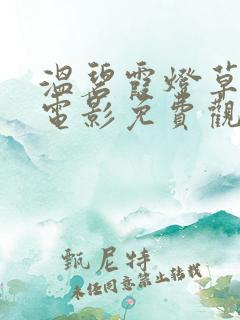 溫碧霞燈草
電影免費觀
甄尼特
未經同意禁止轉載